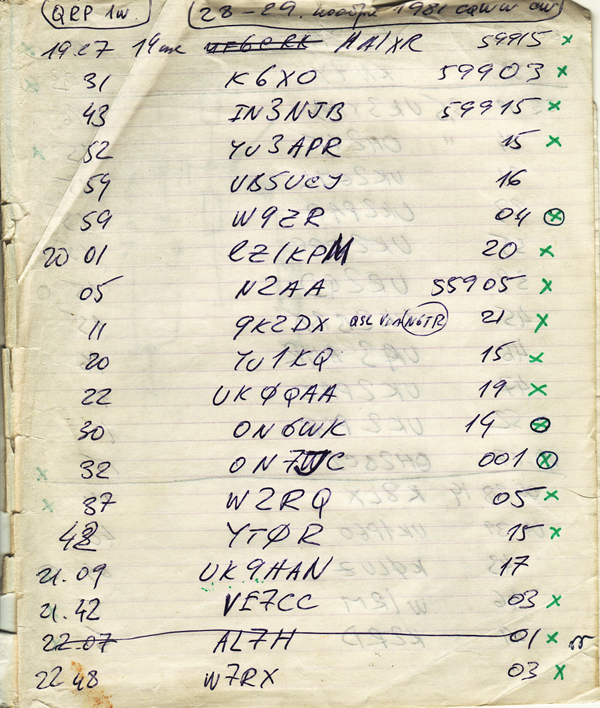 QRP 1w. 28-29. ноября 1981 CQWW CW
1927 14мгц UF6CRK HA1XR 59915 x
31 K6XO 59903 x
43 IN3NJB 59915 x
52 YU3APR 15 x
59 UB5UCJ 16
59 W9ZR 04 x
20 01 LZ1KPM 20 x
05 N2AA 55905 x
11 9K2DX QSL VIA N6TR 21 x
20 YU1KQ 15 x
22 UKØQAA 19 x
30 ON6WK 14 x
32 ON7WC 001 x
37 W2RQ 05 x
48 YTØR 15 x
21.09 UK9HAN 17
21.42 VE7CC 03 x
22.07 AL7H 01 x
22 48 W7RX 03 x